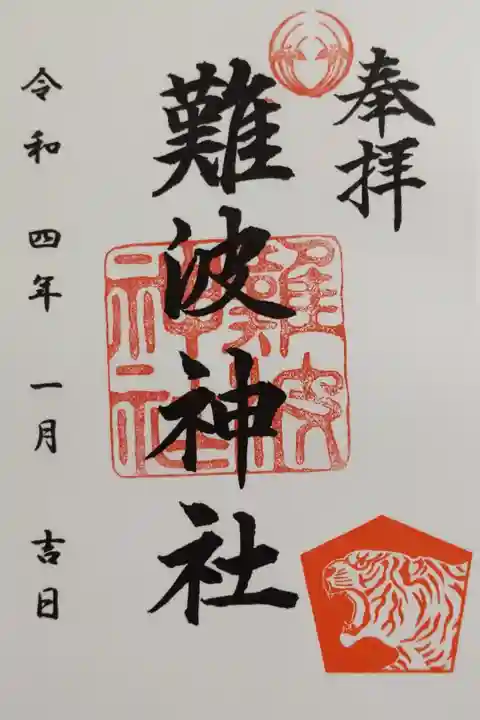 奉拝
難波神社
難波神社
令和 四年 一月 吉日